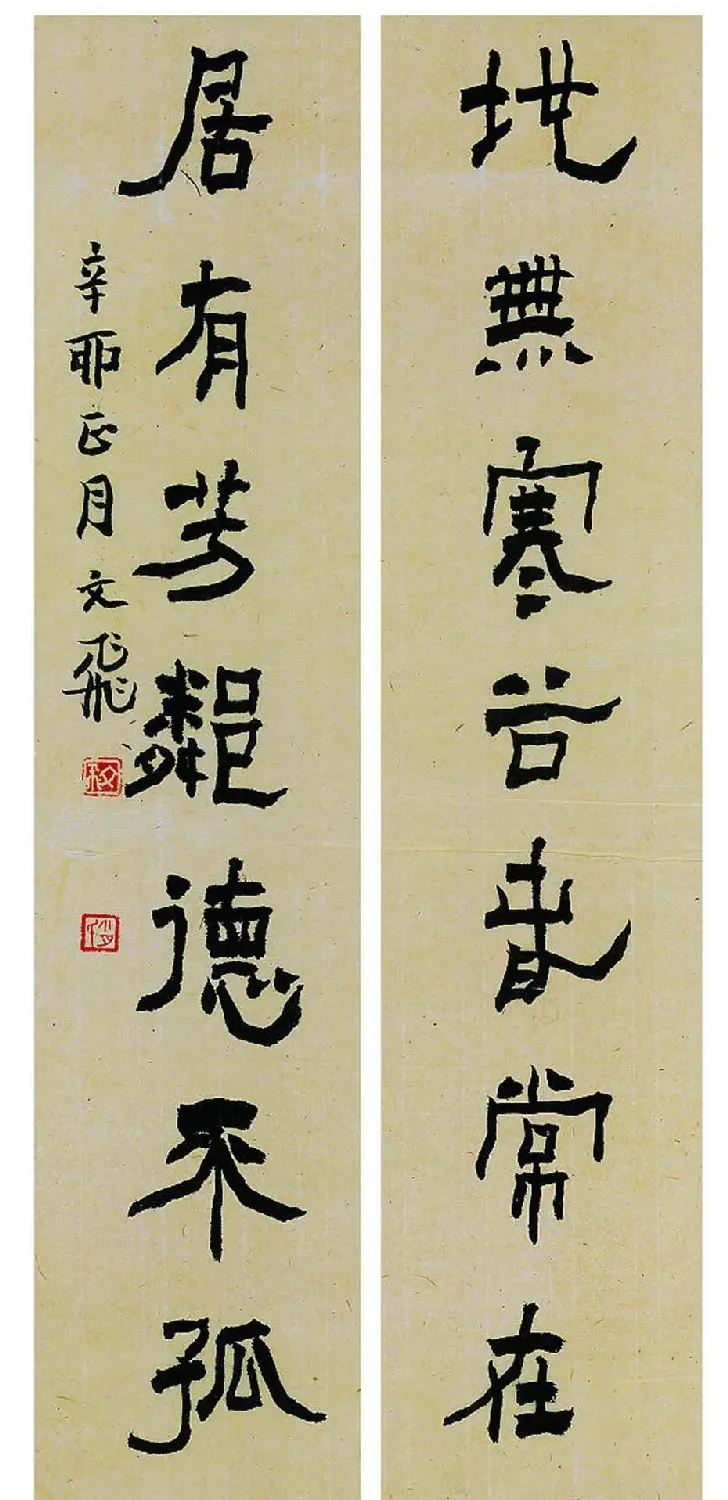 地無寒谷春常在
居有芳鄰德不孤
辛卯正月文飛